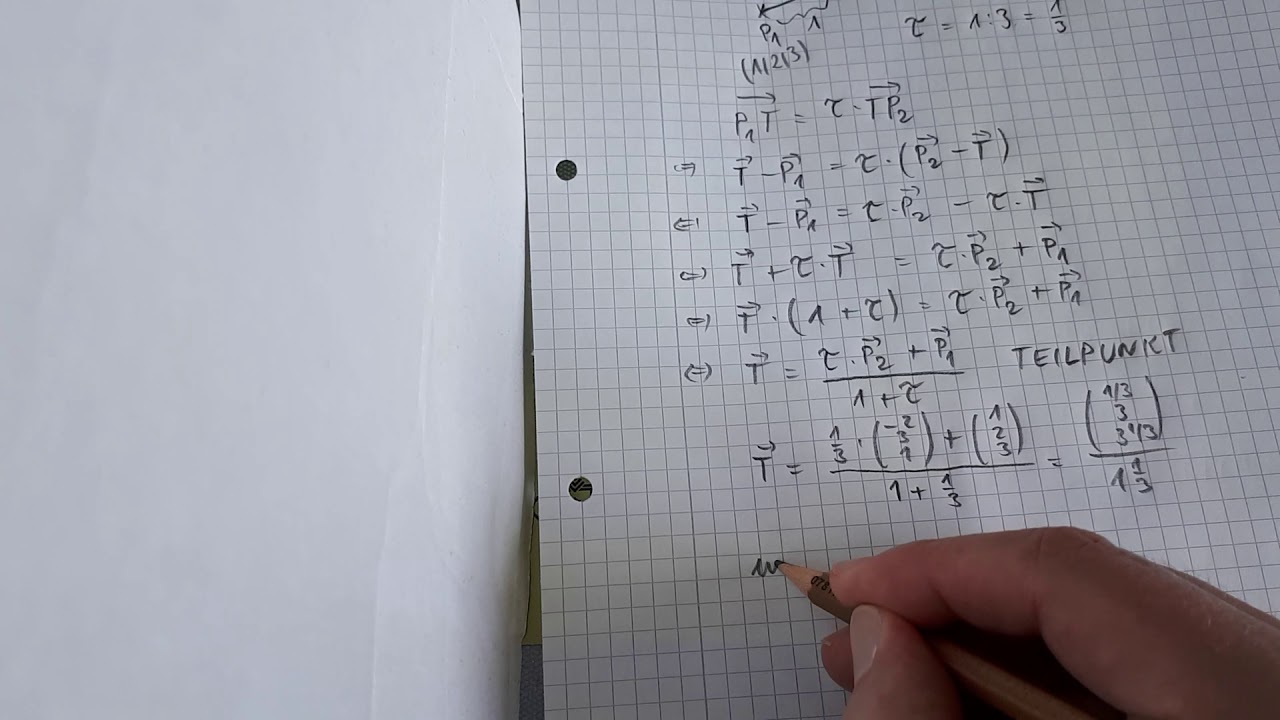 P₁ 1 τ = 1:3 = 1/3
(1|2|3)
P₁T⃗ = τ · TP₂⃗
⇔ T⃗ − P₁⃗ = τ · (P₂⃗ − T⃗)
⇔ T⃗ − P₁⃗ = τ · P₂⃗ − τ · T⃗
⇔ T⃗ + τ · T⃗ = τ · P₂⃗ + P₁⃗
⇔ T⃗ · (1 + τ) = τ · P₂⃗ + P₁⃗
⇔ T⃗ = (τ · P₂⃗ + P₁⃗) / (1 + τ) TEILPUNKT
T⃗ = (1/3 · (−2 3 1) + (1 2 3)) / (1 + 1/3) = (1/3 3 3 1/3) / (1 1/3)